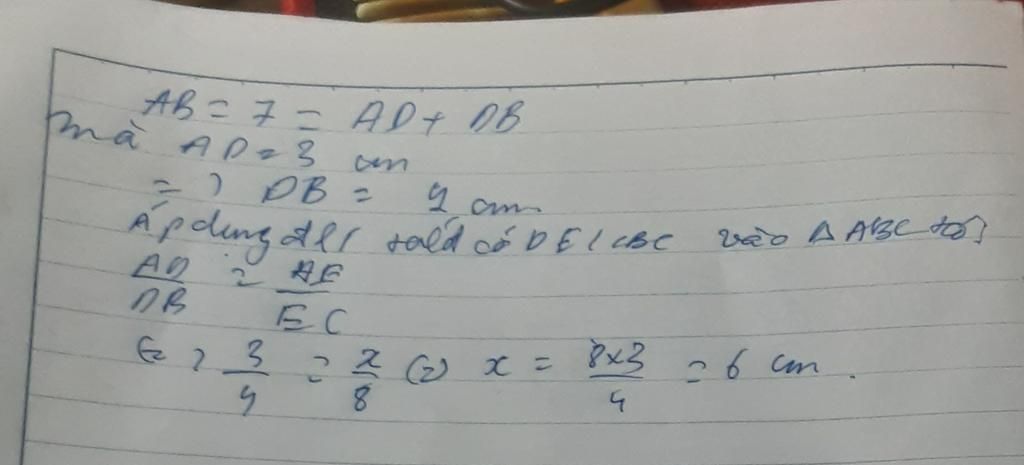 AB = 7 = AD + DB
mà AD = 3 cm
=) DB = 4 cm
Áp dụng đl talet có DE // BC vào Δ ABC
AD/DB = AE/EC
<=> 3/4 = x/8 (=) x = 8x3/4 = 6 cm.